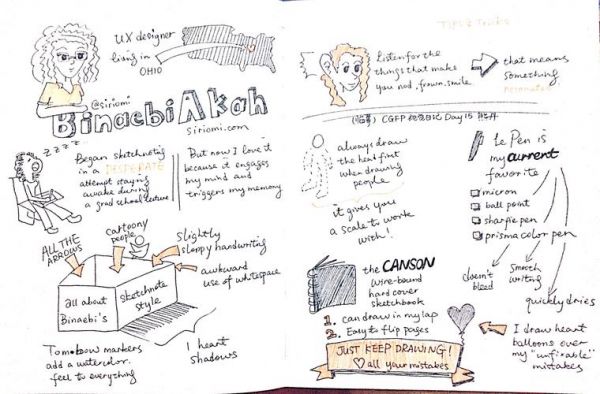 UX designer
living in
OHIO
@siriomi
Binaebi Akah
siriomi.com
zzzz
Began sketchnoting
in a DESPERATE
attempt staying
awake during
a grad school lecture
But now I love it
because it engages
my mind and
triggers my memory
ALL THE
ARROWS
cartoony
people
Slightly
sloppy handwriting
awkward
use of whitespace
all about
Binaebi's
sketchnote
style
Tombow markers
add a watercolor
feel to everything
I heart
shadows
TIPS & Tricks
Listen for the
things that make
you nod, frown, smile
that means
something
resonates
CGFP 视觉日记 Day 15
always draw
the head first
when drawing
people
it gives you
a scale to work
with!
Le Pen is
my current
favorite
micron
ball point
sharpie pen
prisma color pen
doesn't
bleed
smooth
writing
quickly dries
the CANSON
wire-bound
hard cover
sketchbook
1. can draw in my lap
2. Easy to flip pages
JUST KEEP DRAWING!
♡ all your mistakes
I draw heart
balloons over
my "unfixable"
mistakes